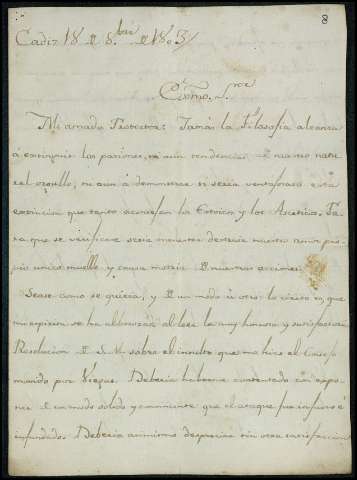 8
Cadiz 18 de 8.bre de 1803
Exmo. S.or
Mi amado Protector: Jamás la Filosofia alcanza
á extinguir las pasiones, ni aun
el orgullo, ni aun á demostrar si seria ventajosa esta
extincion que tanto aconsejan los Estoicos y los Asceticos. Pa
ra que se verificase seria menester destruir nuestro amor pro
pio unico muelle y causa motriz de nuestras acciones.
Sease como se quiera, y de un modo ú otro lo cierto es, que
mi espiritu se ha alborozado al leer la muy honrosa y satisfactoria
Resolucion de S. M. sobre el insulto que me hizo el Conse
mandado por Deberia haberme contentado con expo
ner de un modo solido y convincente que el ataque fue injusto é
infundado. Deberia asimismo despreciar sin otra satisfaccion